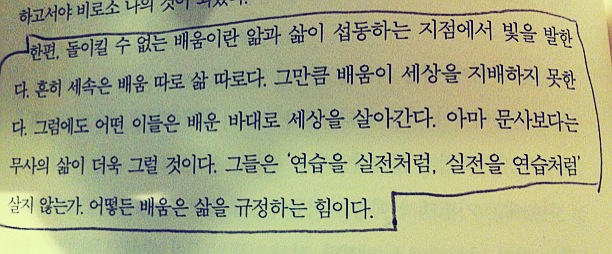 하고서야 비로소 나의 것이 되었다.
한편, 돌이킬 수 없는 배움이란 앎과 삶이 섭동하는 지점에서 빛을 발한
다. 흔히 세속은 배움 따로 삶 따로다. 그만큼 배움이 세상을 지배하지 못한
다. 그럼에도 어떤 이들은 배운 바대로 세상을 살아간다. 아마 문사보다는
무사의 삶이 더욱 그럴 것이다. 그들은 ‘연습을 실전처럼, 실전을 연습처럼’
살지 않는가. 어떻든 배움은 삶을 규정하는 힘이다.